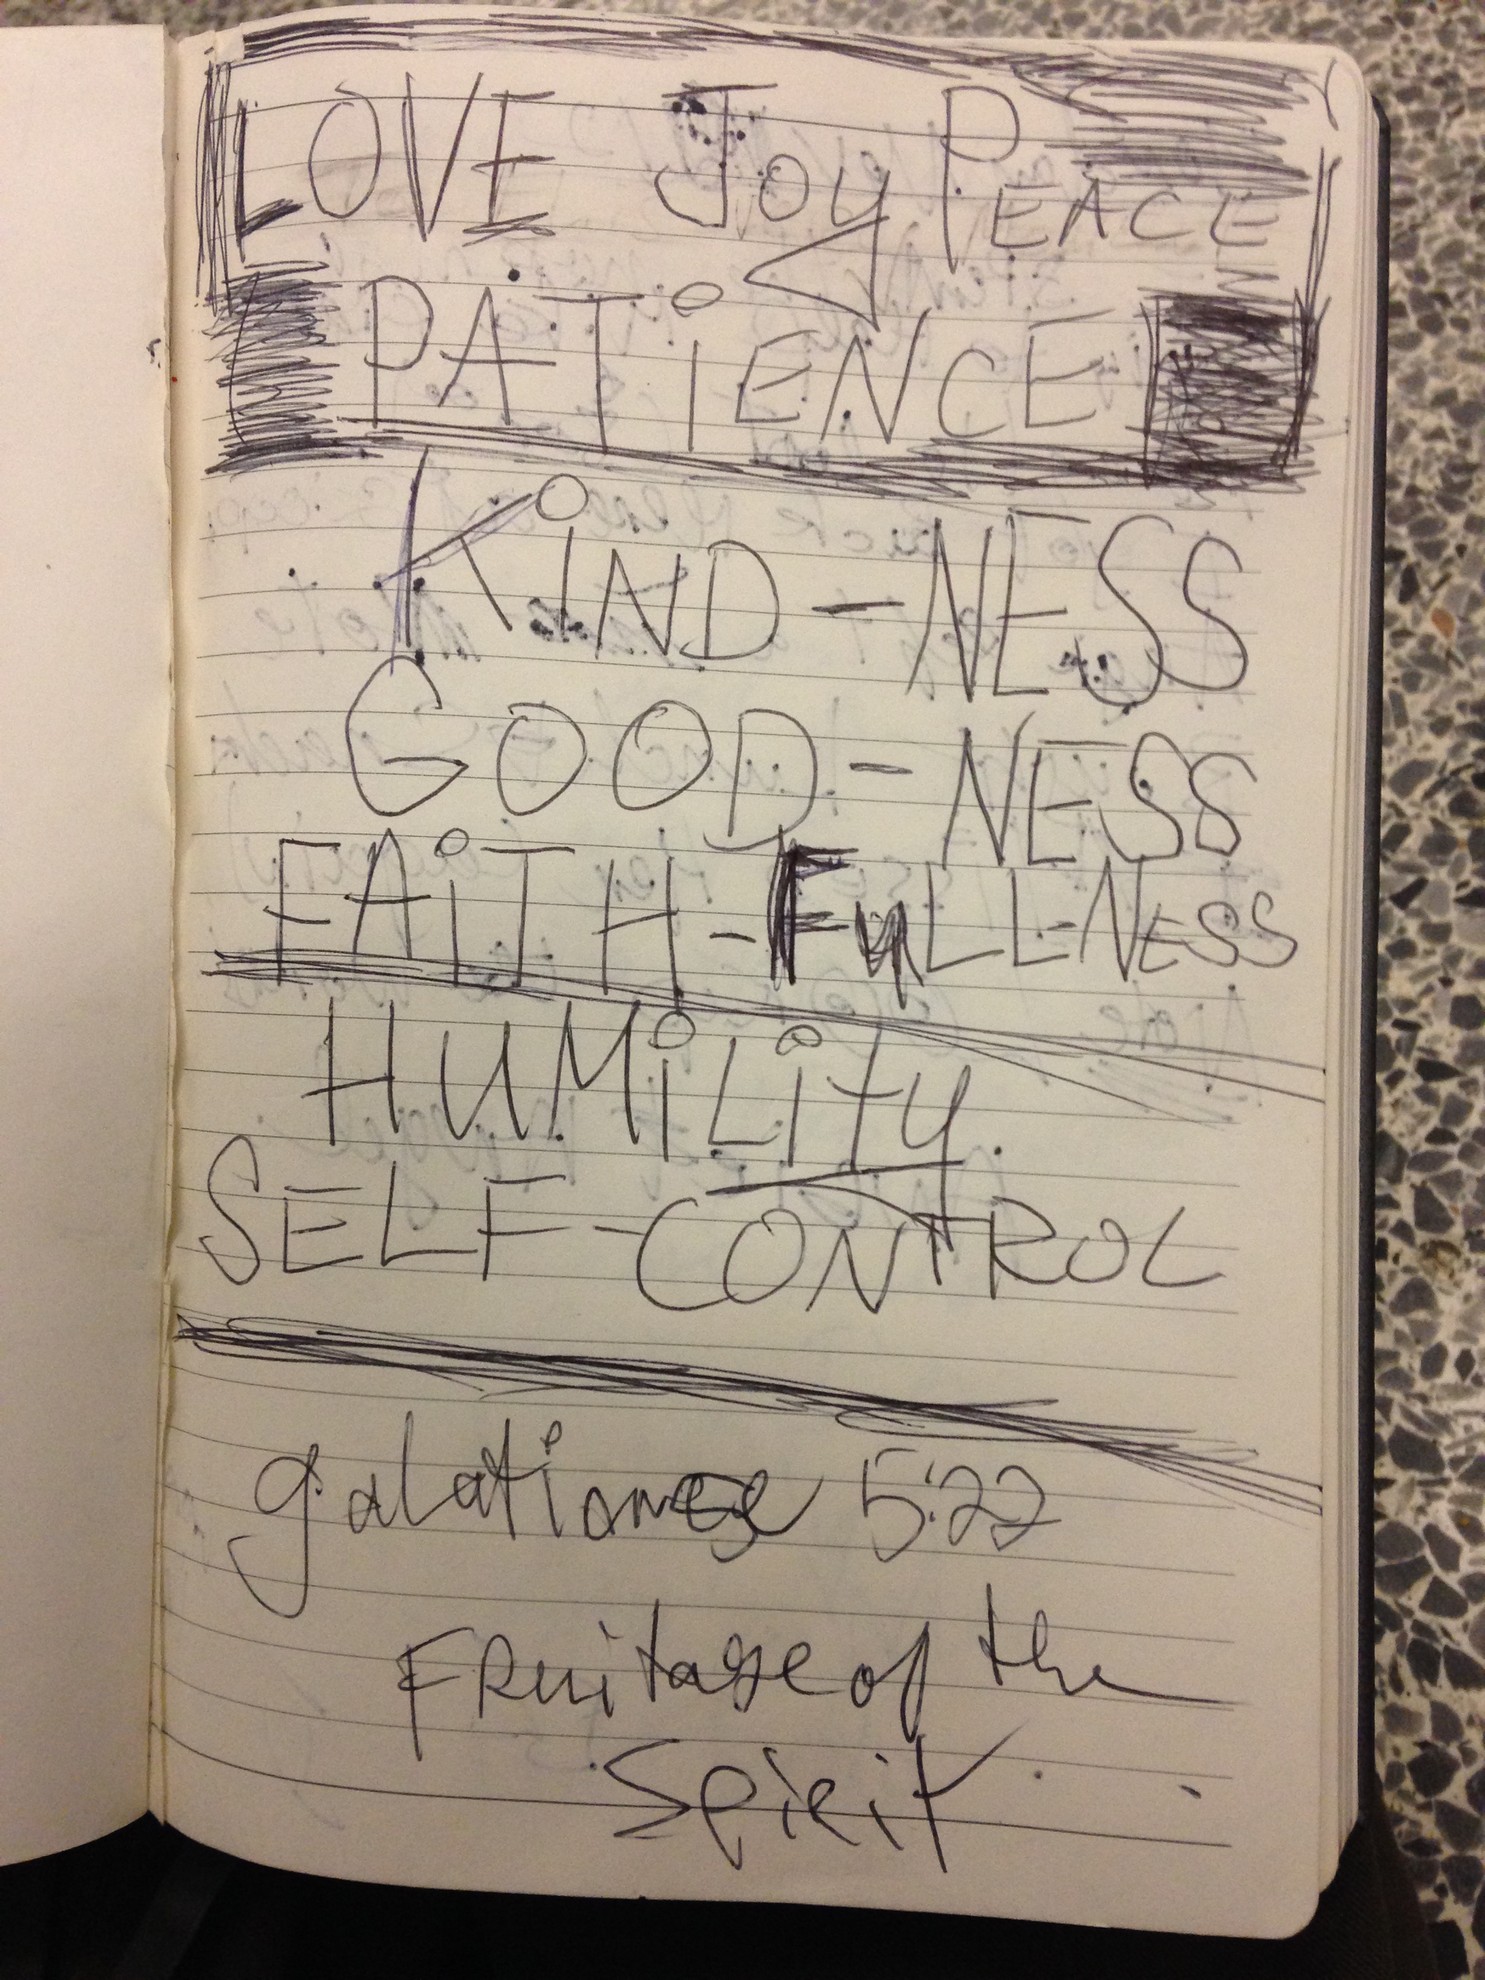 LOVE Joy PEACE
PATiENCE
KiND-NESS
GOOD-NESS
FAiTH-FuLL-NESS
HUMiLiTy
SELF-CONTROL
galations 5:22
FRuitage of the
Spirit